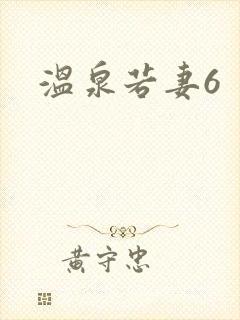 温泉若妻6
黄守忠